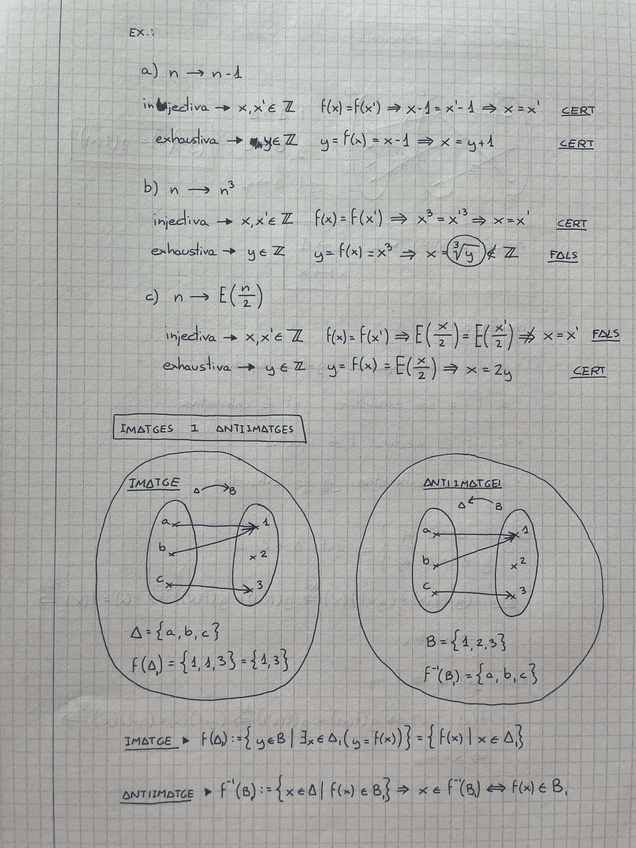 EX.:
a) n → n-1
injectiva → x,x'∈ ℤ f(x)=f(x') ⇒ x-1 = x'-1 ⇒ x = x' CERT
exhaustiva → y∈ ℤ y = f(x) = x-1 ⇒ x = y+1 CERT
b) n → n³
injectiva → x,x'∈ ℤ f(x) = f(x') ⇒ x³ = x'³ ⇒ x=x' CERT
exhaustiva → y ∈ ℤ y = f(x) = x³ ⇒ x = ∛y ∉ ℤ FALS
c) n → E(n/2)
injectiva → x,x'∈ ℤ f(x) = f(x') ⇒ E(x/2) = E(x'/2) ⇏ x = x' FALS
exhaustiva → y ∈ ℤ y = f(x) = E(x/2) ⇒ x = 2y CERT
IMATGES I ANTIIMATGES
IMATGE A → B
a 1
b 2
c 3
A = {a, b, c}
f(A₁) = {1,1,3} = {1,3}
ANTIIMATGE A ← B
a 1
b 2
c 3
B = {1,2,3}
f⁻¹(B₁) = {a, b, c}
IMATGE ▸ f(A₁) := {y∈B | ∃x ∈ A₁ (y = f(x))} = {f(x) | x ∈ A₁}
ANTIIMATGE ▸ f⁻¹(B₁) := {x ∈ A | f(x) ∈ B₁} ⇒ x ∈ f⁻¹(B₁) ⇔ f(x) ∈ B₁